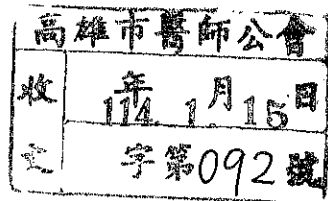 高雄市醫師公會
收文
114年1月15日
字第092號